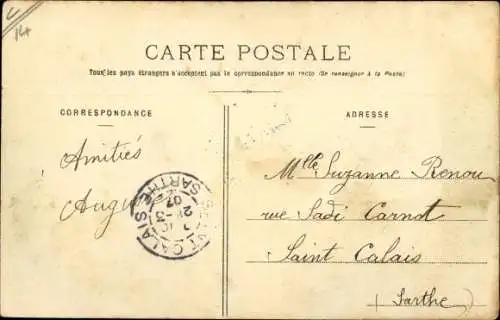 14
CARTE POSTALE
Tous les pays étrangers n'acceptent pas la correspondance au recto (Se renseigner à la Poste)
CORRESPONDANCE
ADRESSE
Amitiés
Mlle Suzanne Renou
rue Sadi Carnot
Saint Calais
(Sarthe)
CALAIS
SARTHE
07